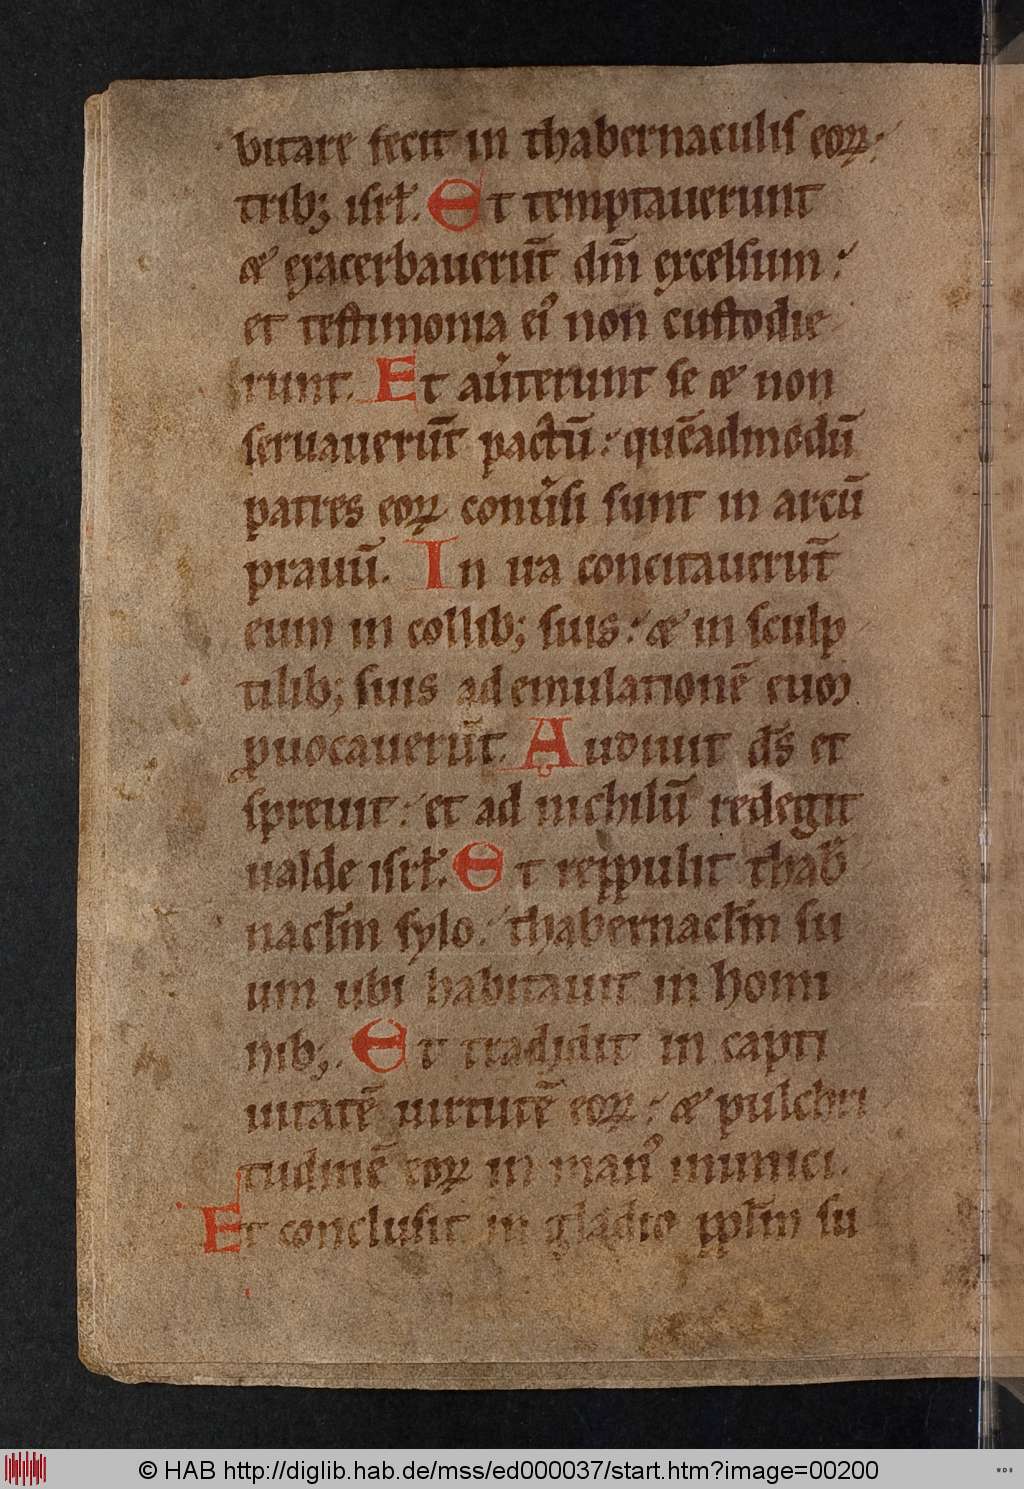 bitare fecit in thabernaculis eoꝝ
trib; isrł. Et temptauerunt
& exacerbauerūt dm̄ excelsum:
et testimonia eiꝰ non custodie
runt. Et au̓terunt se & non
seruauerūt pactū: quēadmodū
patres eoꝝ conu̓si sunt in arcū
prauū. In ira concitauerūt
eum in collib; suis: & in sculp
tilib; suis ad emulationē eum
ꝓuocauerūt. Audiuit ds̄ et
spreuit: et ad nichilū redegit
ualde isrł. Et reppulit thab̓
nacłm sylo: thabernacłm su
um ubi habitauit in homi
nib;. Et tradidit in capti
uitatē uirtutē eoꝝ: & pulchri
tudinē eoꝝ in manꝰ inimici.
Et conclusit in gladio ppłm su
© HAB http://diglib.hab.de/mss/ed000037/start.htm?image=00200